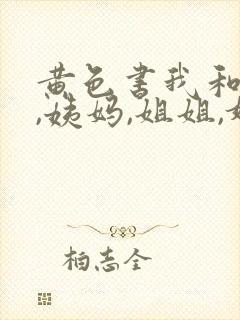 黄色书我和
,姨妈,姐姐,
柏志全